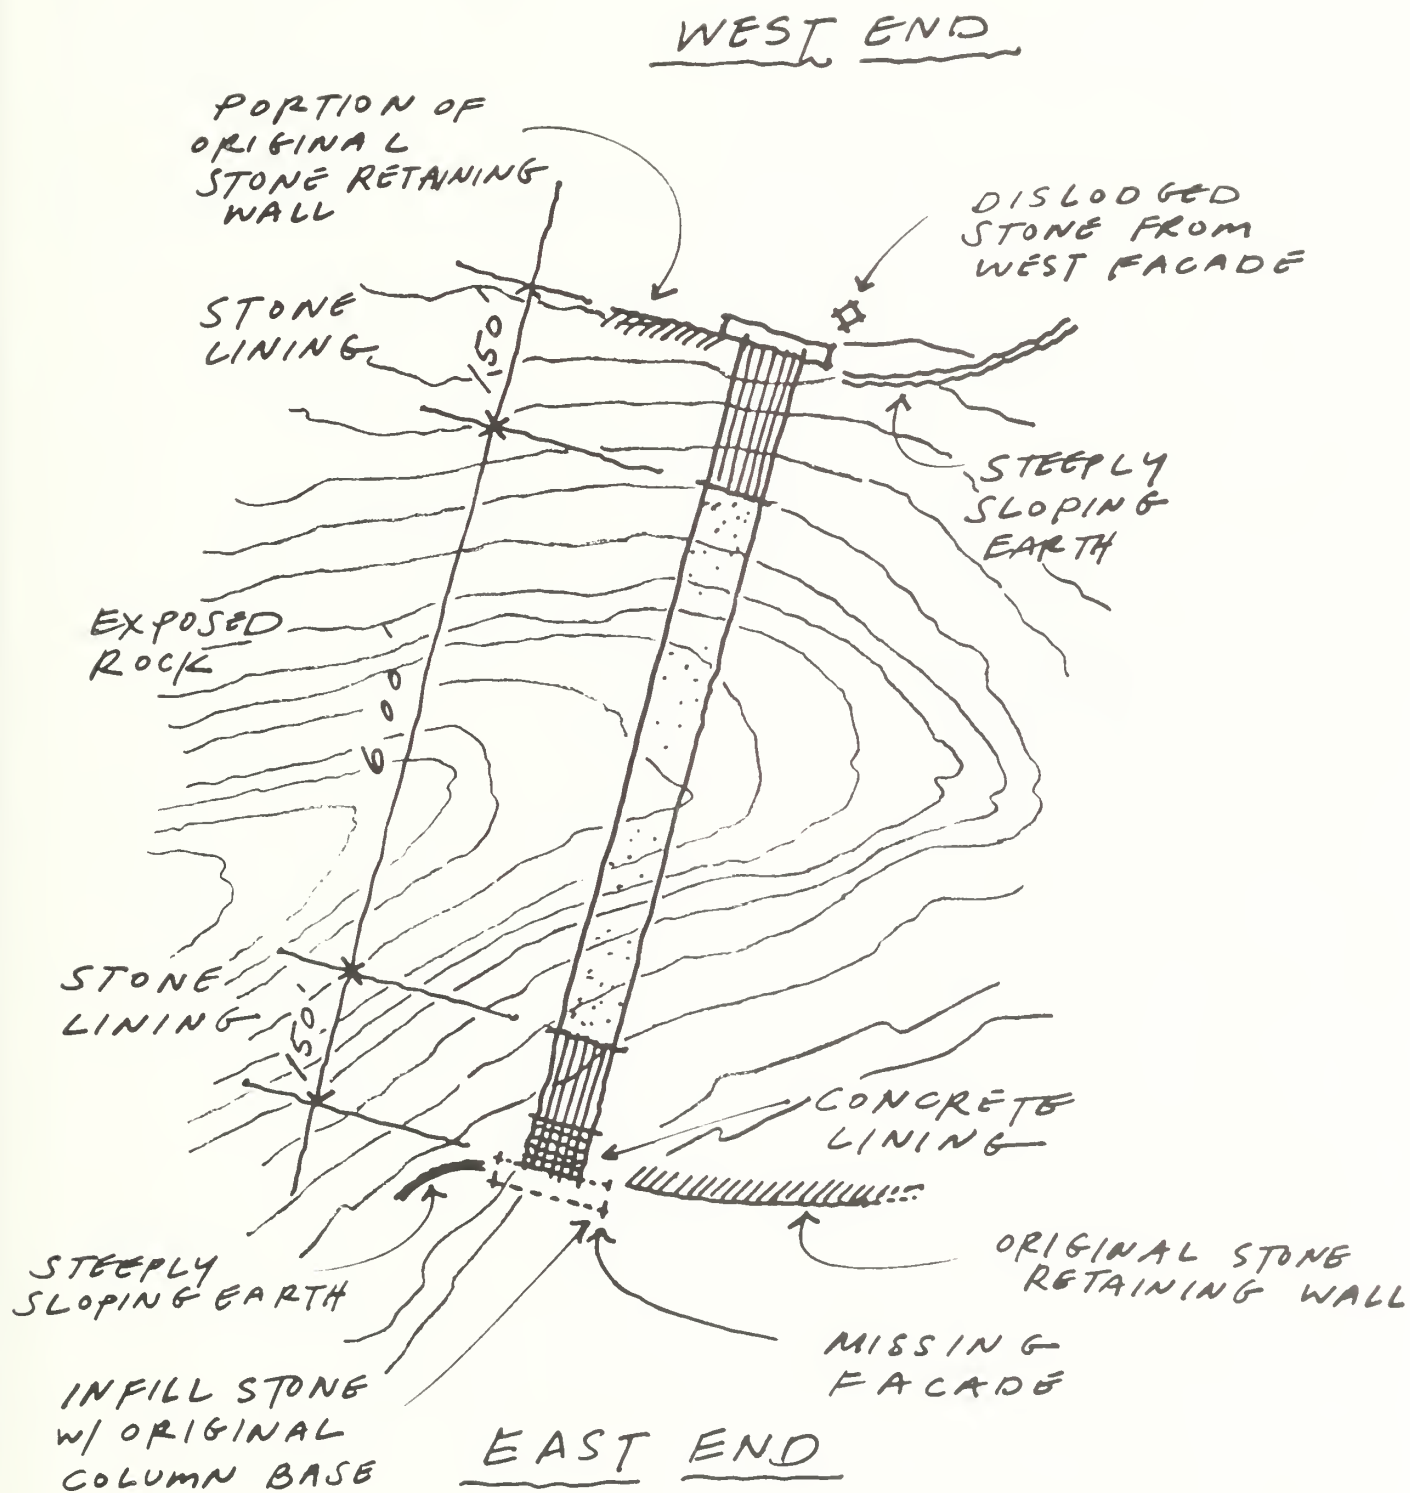 WEST END
PORTION OF
ORIGINAL
STONE RETAINING
WALL
DISLODGED
STONE FROM
WEST FACADE
STONE
LINING
150'
STEEPLY
SLOPING
EARTH
EXPOSED
ROCK
600'
STONE
LINING
150'
CONCRETE
LINING
STEEPLY
SLOPING EARTH
ORIGINAL STONE
RETAINING WALL
MISSING
FACADE
INFILL STONE
W/ ORIGINAL
COLUMN BASE
EAST END